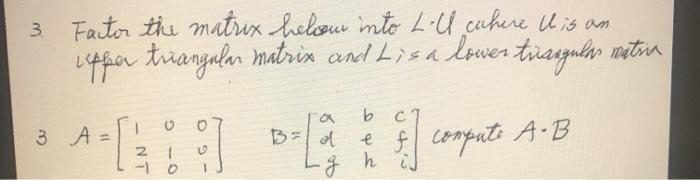 3. Factor the matrix below into L·U where U is an
upper triangular matrix and L is a lower triangular matrix
3 A = [1 0 0 B = [a b c
2 1 0 d e f compute A·B
-1 0 1] g h i]